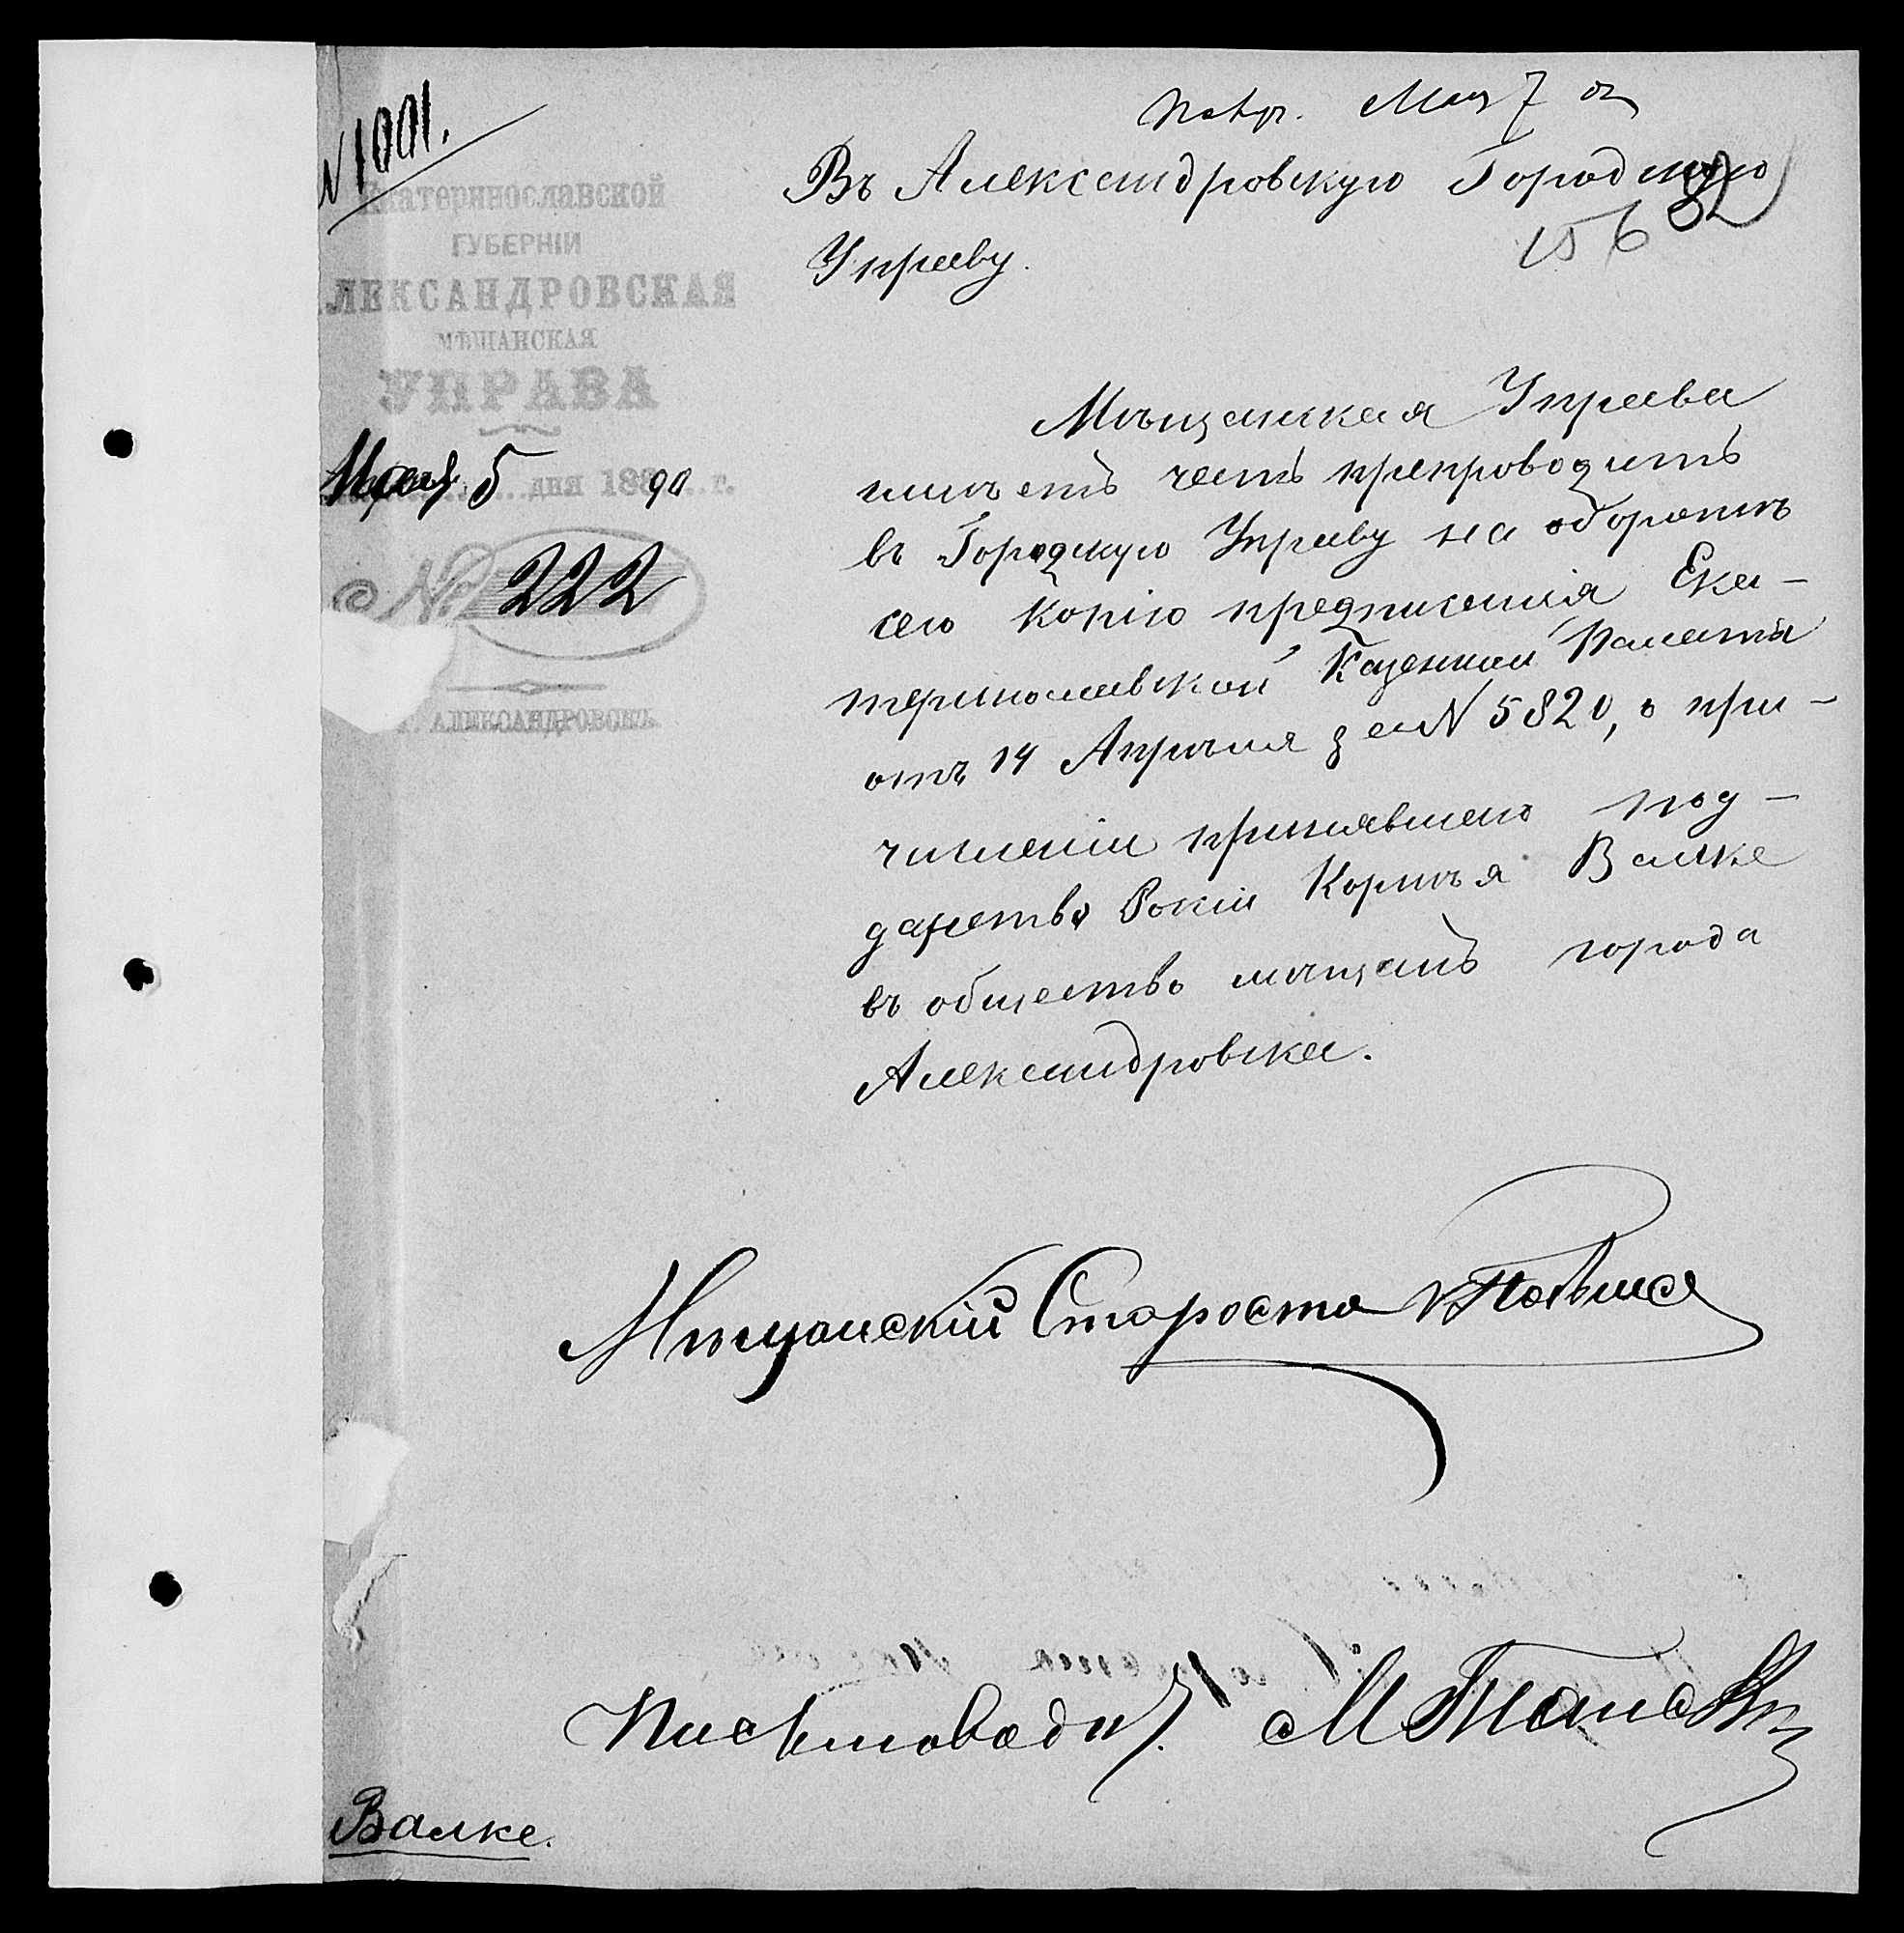 N 1001.
Екатеринославской
ГУБЕРНІИ
АЛЕКСАНДРОВСКАЯ
МѢЩАНСКАЯ
УПРАВА
Мая 5 дня 1890 г.
№ 222
Г. АЛЕКСАНДРОВСКЪ
Мая 7
Въ Александровскую Городскую
Управу.
82
156
Мѣщанская Управа
имѣетъ честь препроводить
въ Городскую Управу на оборотѣ
сего копію предписанія Ека-
теринославской Казенной Палаты
отъ 14 Апрѣля за N 5820, о при-
численіи принявшаго под-
данство Россіи Корнѣя Валке
въ общество мѣщанъ города
Александровска.
Мѣщанскій Староста
Письмоводит.
Валке.